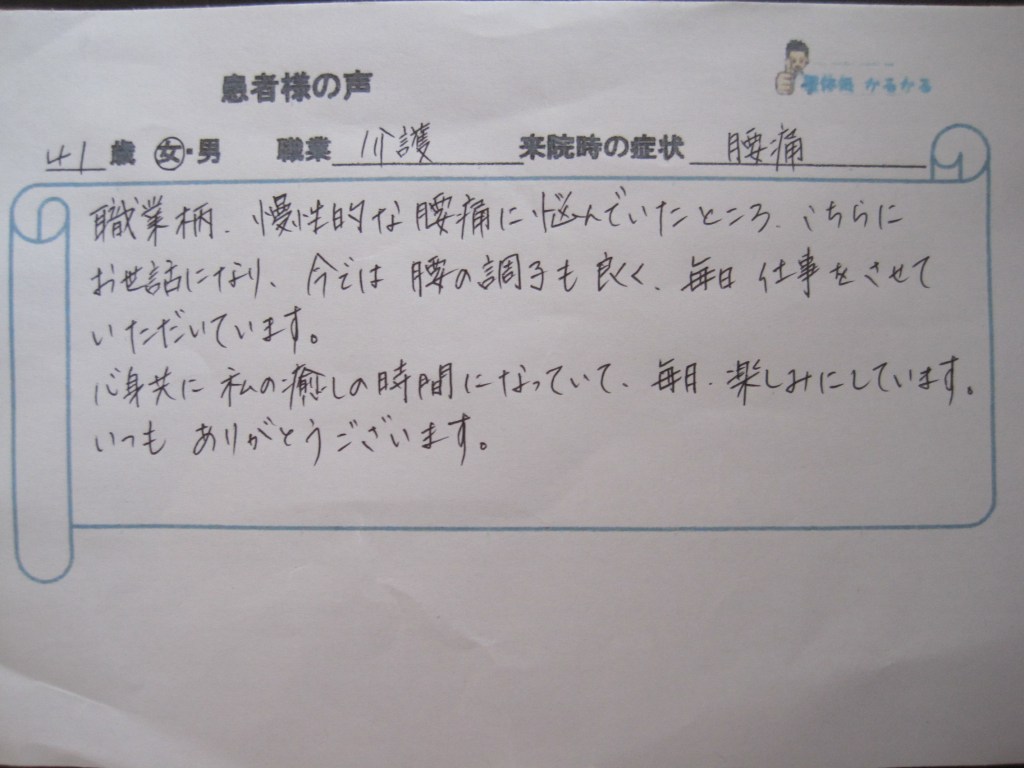 患者様の声
整体処 かるかる
41 歳 女・男 職業 介護 来院時の症状 腰痛
職業柄、慢性的な腰痛に悩んでいたところ、こちらに
お世話になり、今では腰の調子も良く、毎日仕事をさせて
いただいています。
心身共に私の癒しの時間になっていて、毎月、楽しみにしています。
いつもありがとうございます。